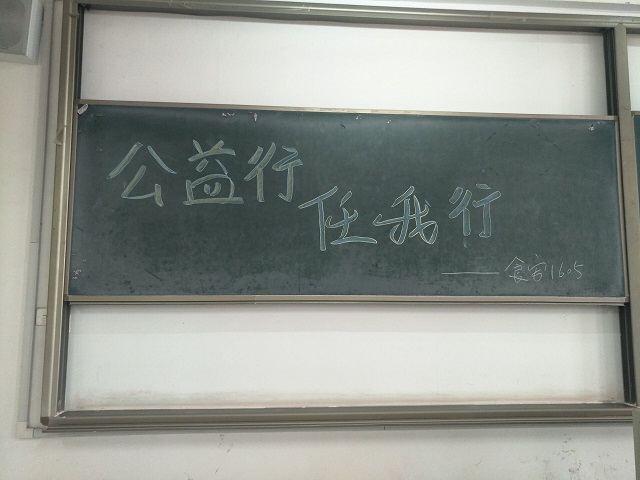 公益行
任我行
——食安1605